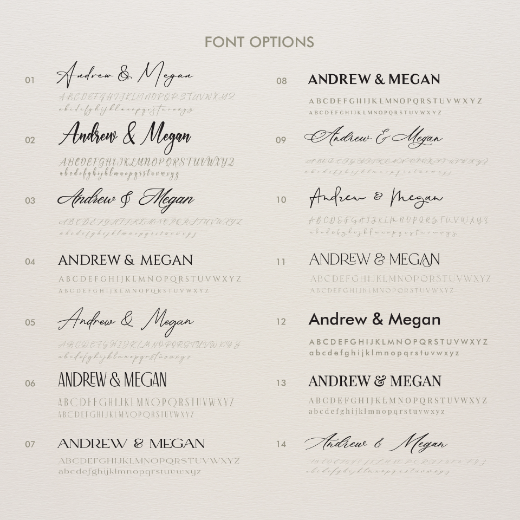 FONT OPTIONS
01 Andrew & Megan
ABCDEFGHIJKLMNOPQRSTUVWXYZ
abcdefghijklmnopqrstuvwxyz
02 Andrew & Megan
ABCDEFGHIJKLMNOPQRSTUVWXYZ
abcdefghijklmnopqrstuvwxyz
03 Andrew & Megan
ABCDEFGHIJKLMNOPQRSTUVWXYZ
abcdefghijklmnopqrstuvwxyz
04 ANDREW & MEGAN
ABCDEFGHIJKLMNOPQRSTUVWXYZ
ABCDEFGHIJKLMNOPQRSTUVWXYZ
05 Andrew & Megan
ABCDEFGHIJKLMNOPQRSTUVWXYZ
abcdefghijklmnopqrstuvwxyz
06 ANDREW & MEGAN
ABCDEFGHIJKLMNOPQRSTUVWXYZ
ABCDEFGHIJKLMNOPQRSTUVWXYZ
07 ANDREW & MEGAN
ABCDEFGHIJKLMNOPQRSTUVWXYZ
abcdefghijklmnopqrstuvwxyz
08 ANDREW & MEGAN
ABCDEFGHIJKLMNOPQRSTUVWXYZ
ABCDEFGHIJKLMNOPQRSTUVWXYZ
09 Andrew & Megan
10 Andrew & Megan
ABCDEFGHIJKLMNOPQRSTUVWXYZ
abcdefghijklmnopqrstuvwxyz
11 ANDREW & MEGAN
ABCDEFGHIJKLMNOPQRSTUVWXYZ
ABCDEFGHIJKLMNOPQRSTUVWXYZ
12 Andrew & Megan
ABCDEFGHIJKLMNOPQRSTUVWXYZ
abcdefghijklmnopqrstuvwxyz
13 ANDREW & MEGAN
ABCDEFGHIJKLMNOPQRSTUVWXYZ
abcdefghijklmnopqrstuvwxyz
14 Andrew & Megan